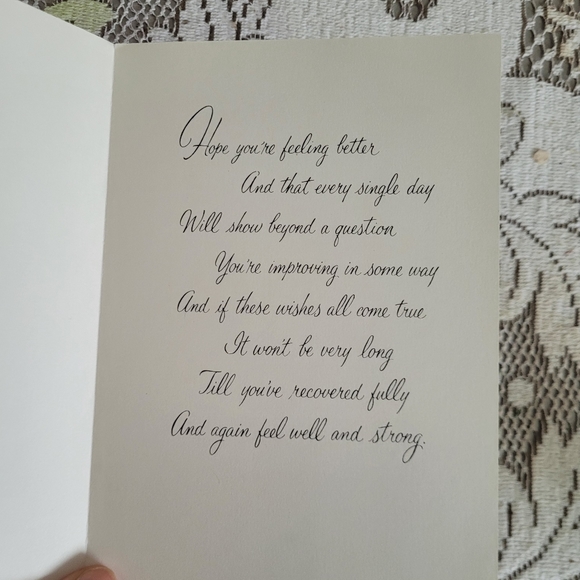 Hope you're feeling better
And that every single day
Will show beyond a question
You're improving in some way
And if these wishes all come true
It won't be very long
Till you've recovered fully
And again feel well and strong.